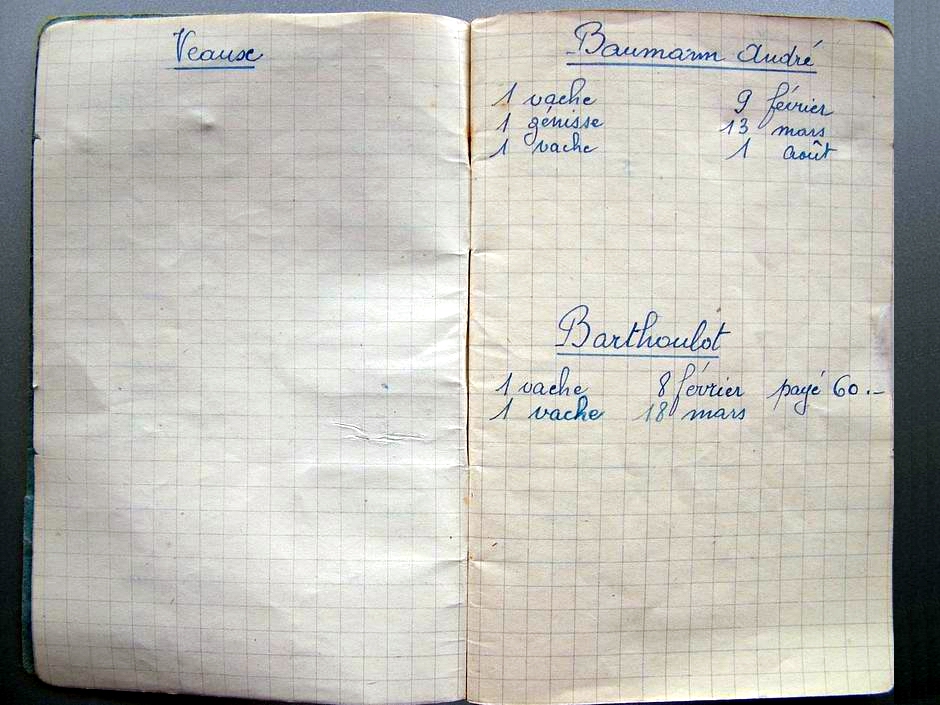 Veaux
Baumann André
1 vache 9 février
1 génisse 13 mars
1 vache 1 août
Barthoulot
1 vache 8 février payé 60.-
1 vache 18 mars